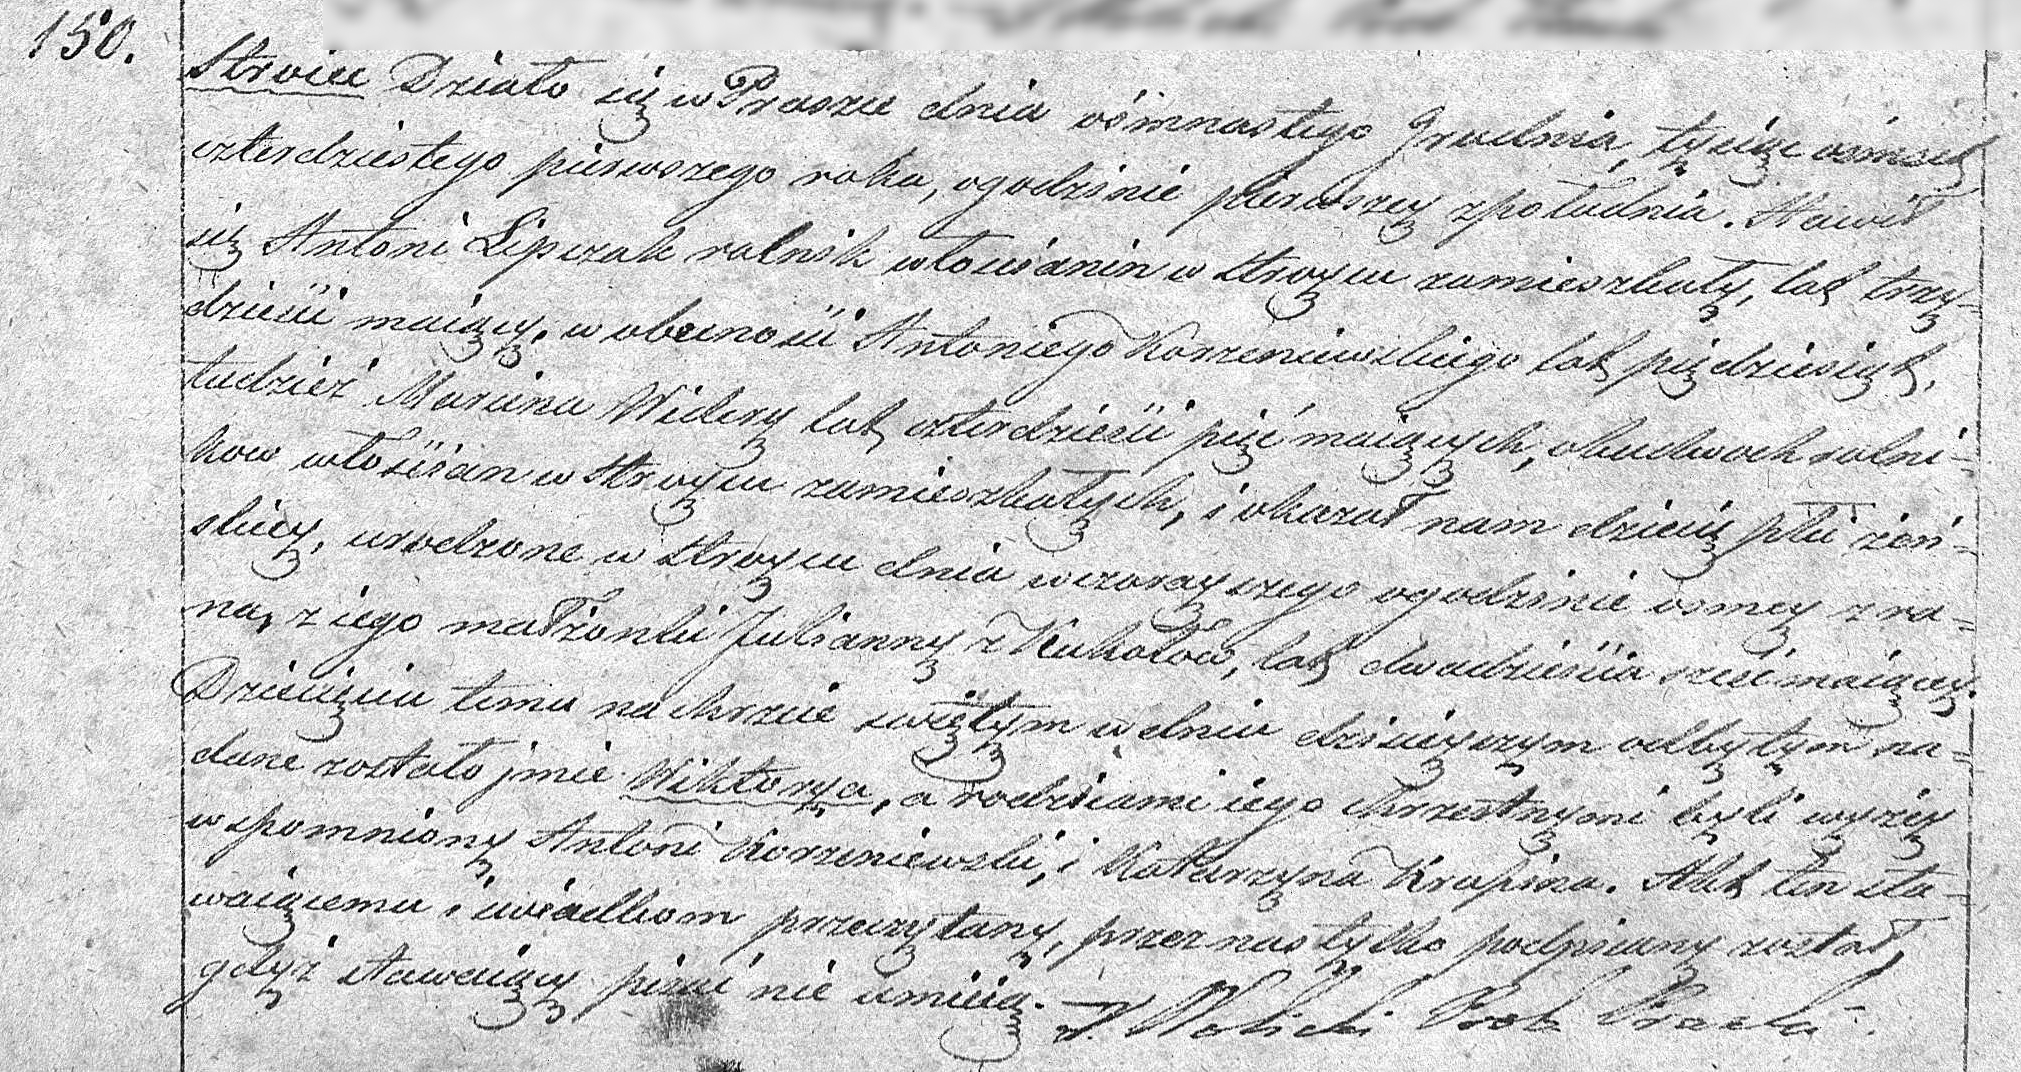 150.
Stroiec Działo się w Praszce dnia ośmnastego Grudnia, tysiąc ośmset
czterdziestego pierwszego roku, ogodzinie pierwszey z południa. Stawił
się Antoni Lipczak rolnik włościanin w Stroycu zamieszkały, lat trzy-
dzieści maiący, w obecności Antoniego Korzeniewskiego lat pięćdziesiąt,
tudzież Marcina Widery lat czterdzieści pięć maiących, obudwoch rolni-
kow włościan w Stroycu zamieszkałych, i okazał nam dziecię płci żeń-
skiey, urodzone w Stroycu dnia wczorayszego ogodzinie osmey zra-
na, z iego małżonki Julianny z Kukołów, lat dwadzieścia sześć maiącey.
Dziecięciu temu na Chrzcie świętym w dniu dzisieyszym odbytym na-
dane zostało jmie Wiktorya, a rodzicami iego chrzestnymi byli wyżey
wspomniony Antoni Korzeniewski, i Katarzyna Krupina. Akt ten sta-
waiącemu i świadkom przeczytany, przez nas tylko podpisany został,
gdyż stawaiący pisać nie umieią. X W Prob